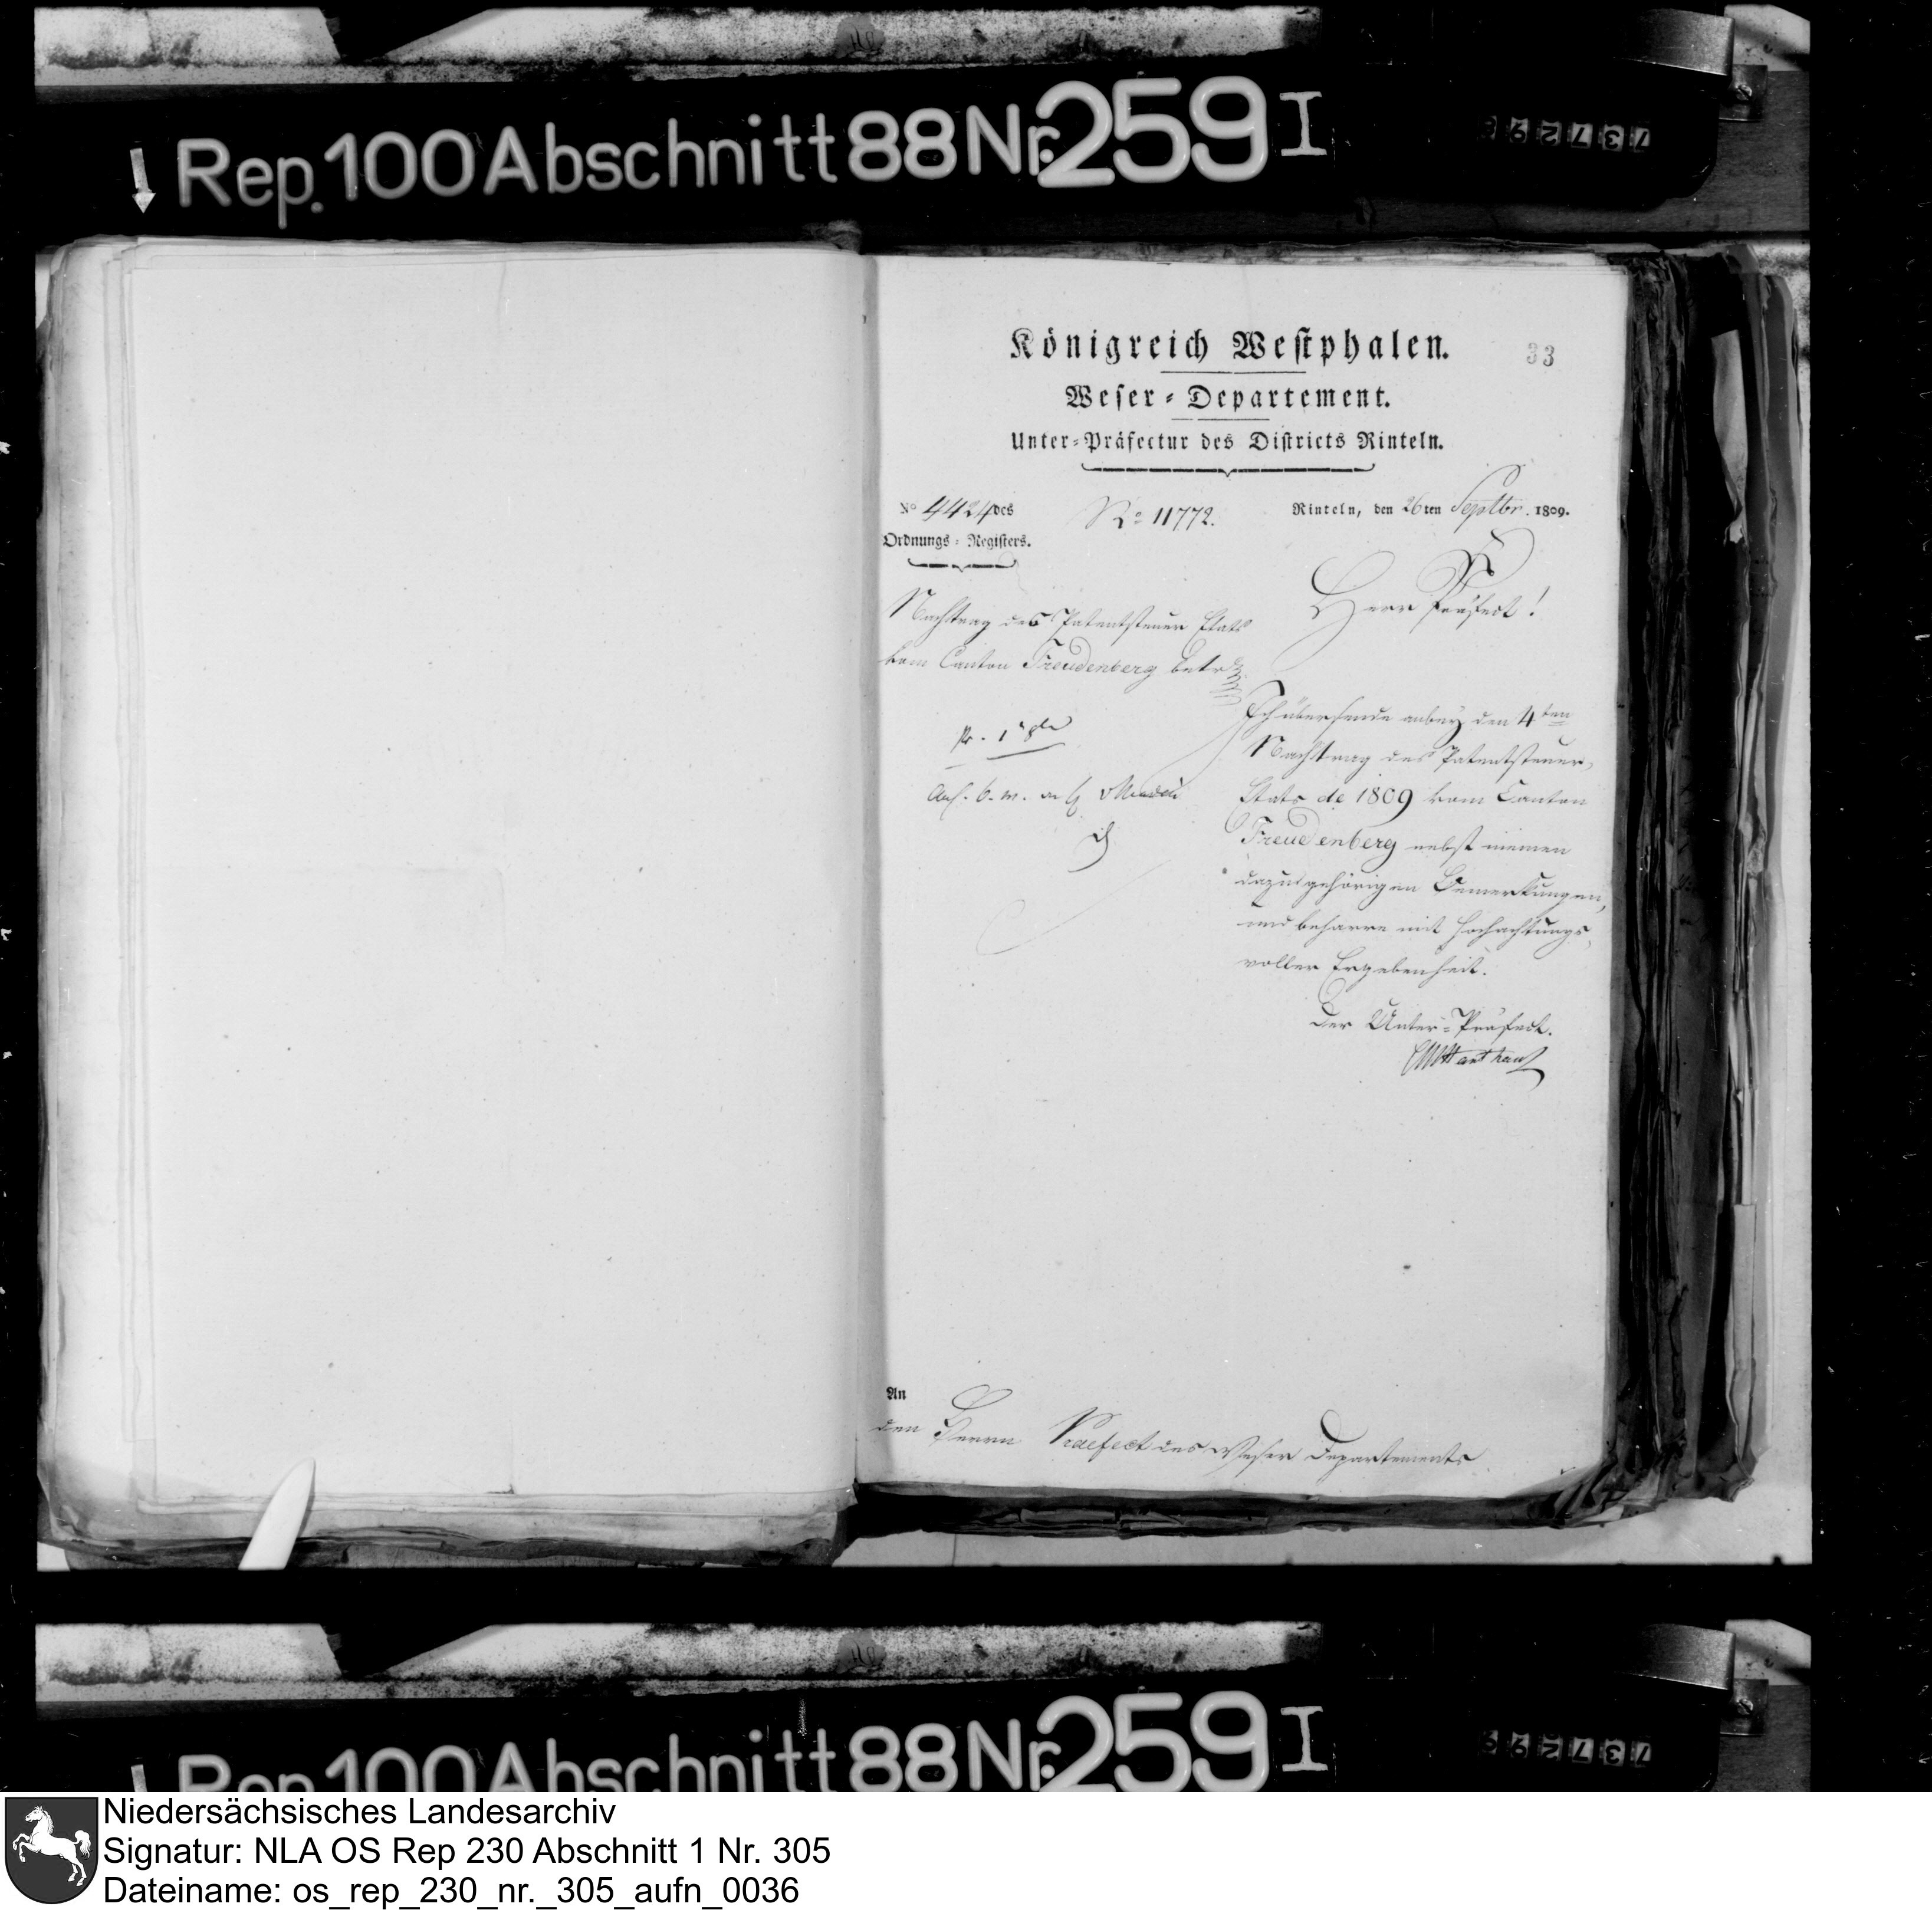 Rep. 100 Abschnitt 88 Nr. 259 I
Königreich Westphalen.
33
Weser-Departement.
Unter-Präfectur des Districts Rinteln.
No 4424 des
Ordnungs-Registers.
No 11772.
Rinteln, den 26ten Septbr. 1809.
Herr Präfect!
Nachtrag des Patentsteuer Etats
vom Canton Freudenberg betr.
Ich übersende anbey den 4ten
Nachtrag des Patentsteuer-
Etats de 1809 vom Canton
Freudenberg nebst meinen
dazu gehörigen Bemerkungen,
und beharre mit hochachtungs-
voller Ergebenheit.
Der Unter-Präfect.
An
den Herrn Praefect des Weser Departements
Rep. 100 Abschnitt 88 Nr. 259 I
Niedersächsisches Landesarchiv
Signatur: NLA OS Rep 230 Abschnitt 1 Nr. 305
Dateiname: os_rep_230_nr._305_aufn_0036